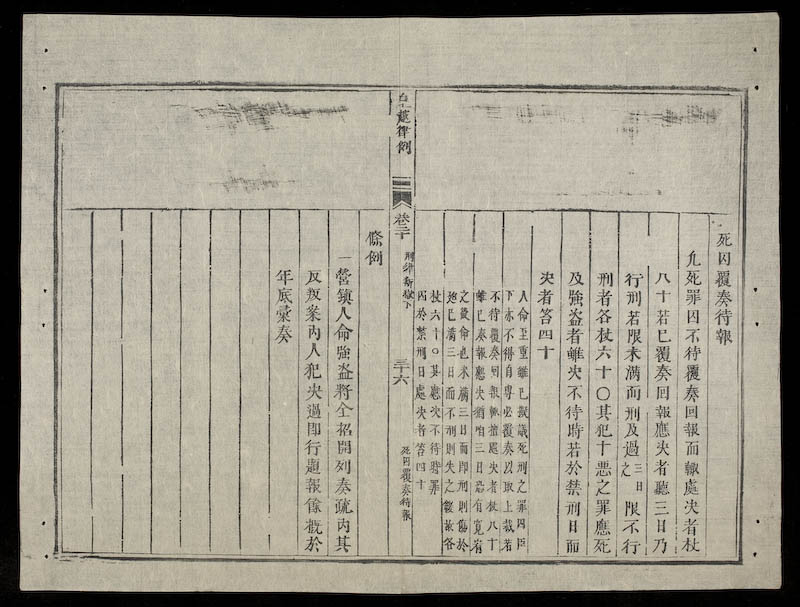 死囚覆奏待報
凢死罪囚不待覆奏回報而輒處决者杖
八十若已覆奏回報應决者聽三日乃
行刑若限未滿而刑及過三日之限不行
刑者各杖六十〇其犯十惡之罪應死
及強盗者雖决不待時若於禁刑日而
决者笞四十
人命至重雖已擬議死刑之罪囚臣
下亦不得自專必覆奏以取上裁若
不待覆奏回報輒擅處决者杖八十
雖已奏報應决猶
三日恐有寃宥
之後命也未滿三日而即刑則傷於
已滿三日而不刑則失之緩故各
杖六十〇其應决不待時罪
囚於禁刑日處决者笞四十
皇越律例
卷二十
刑律斷獄下
三十六
死囚覆奏待報
條例
一營鎮人命強盗將全招開列奏疏内其
反叛案内人犯决過即行題報像概於
年底彙奏